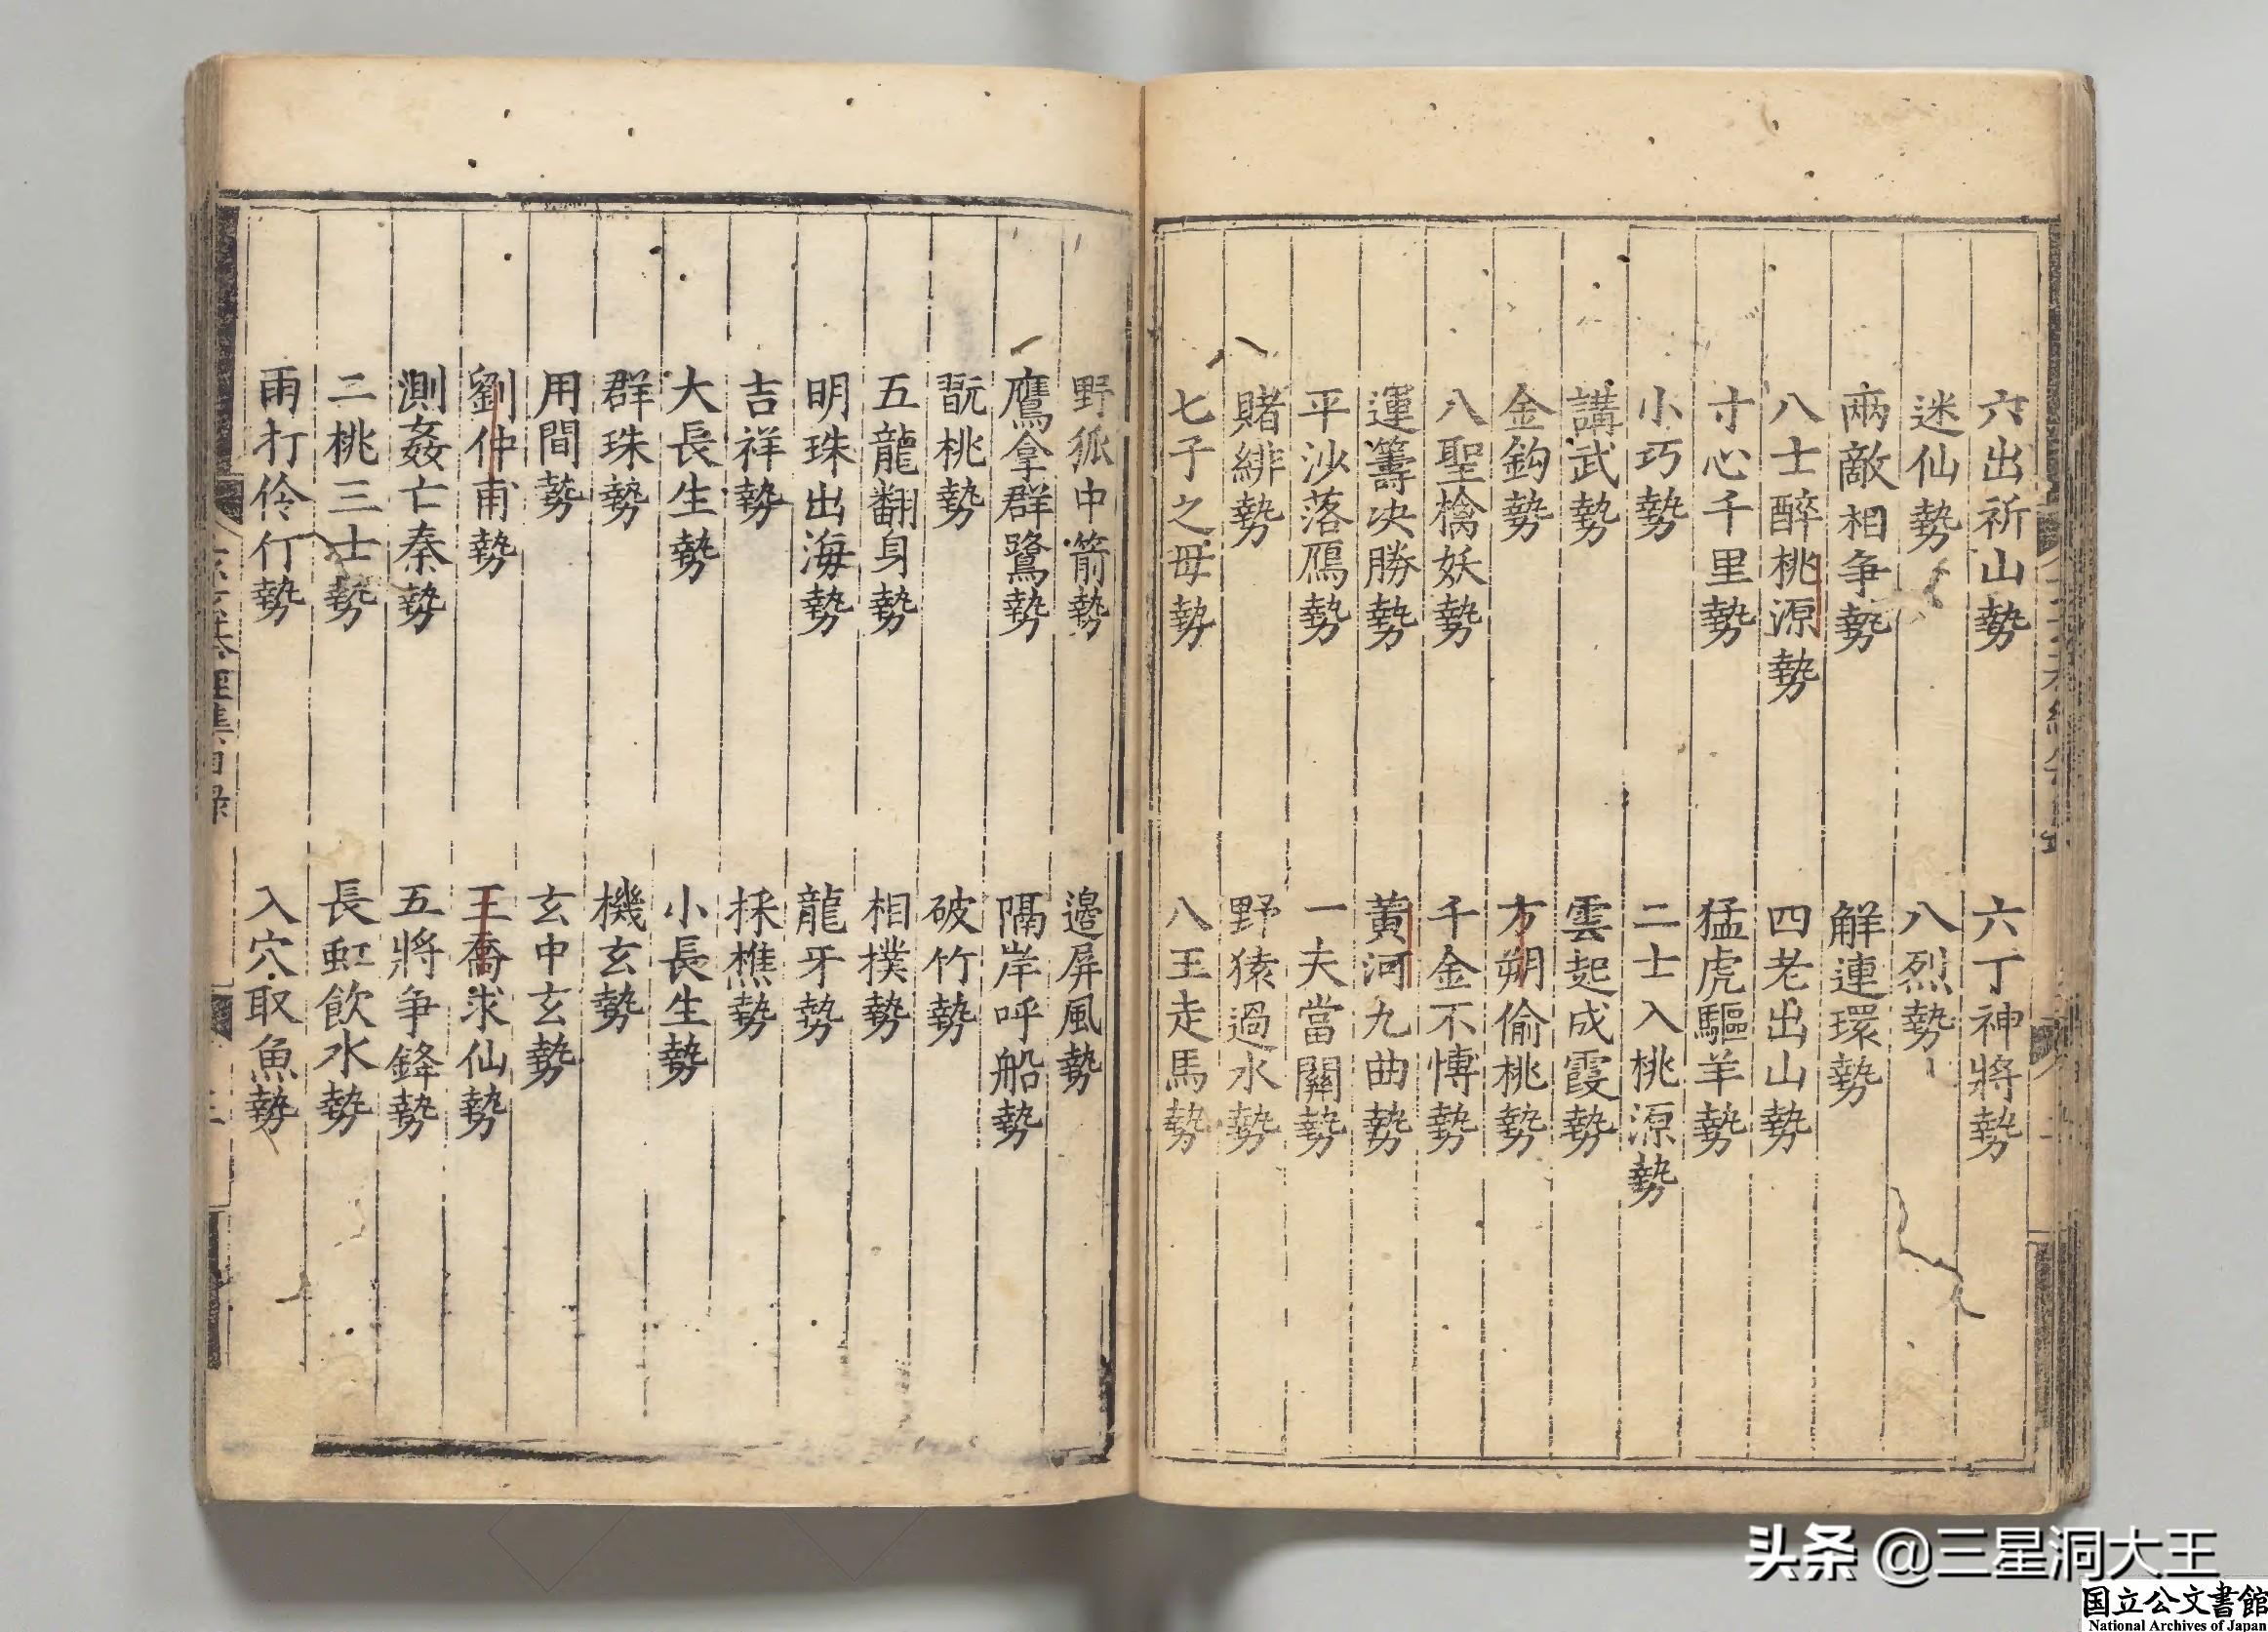 六出祈山勢
六丁神將勢
迷仙勢
八烈勢
兩敵相争勢
解連環勢
八士醉桃源勢
四老出山勢
寸心千里勢
猛虎驅羊勢
小巧勢
二士入桃源勢
講武勢
雲起成霞勢
金鈎勢
方朔偷桃勢
八聖擒妖勢
千金不愽勢
運籌决勝勢
黄河九曲勢
平沙落鴈勢
一夫當關勢
賭緋勢
野猿過水勢
七子之母勢
八王走馬勢
野狐中箭勢
邉屏風勢
鷹拿群鷺勢
隔岸呼船勢
翫桃勢
破竹勢
五龍翻身勢
相撲勢
明珠出海勢
龍牙勢
吉祥勢
採樵勢
大長生勢
小長生勢
群珠勢
機玄勢
用間勢
玄中玄勢
劉仲甫勢
王喬求仙勢
測姦亡秦勢
五將争鋒勢
二桃三士勢
長虹飲水勢
雨打伶仃勢
入穴取魚勢
头条 @三星洞大王
国立公文書館
National Archives of Japan